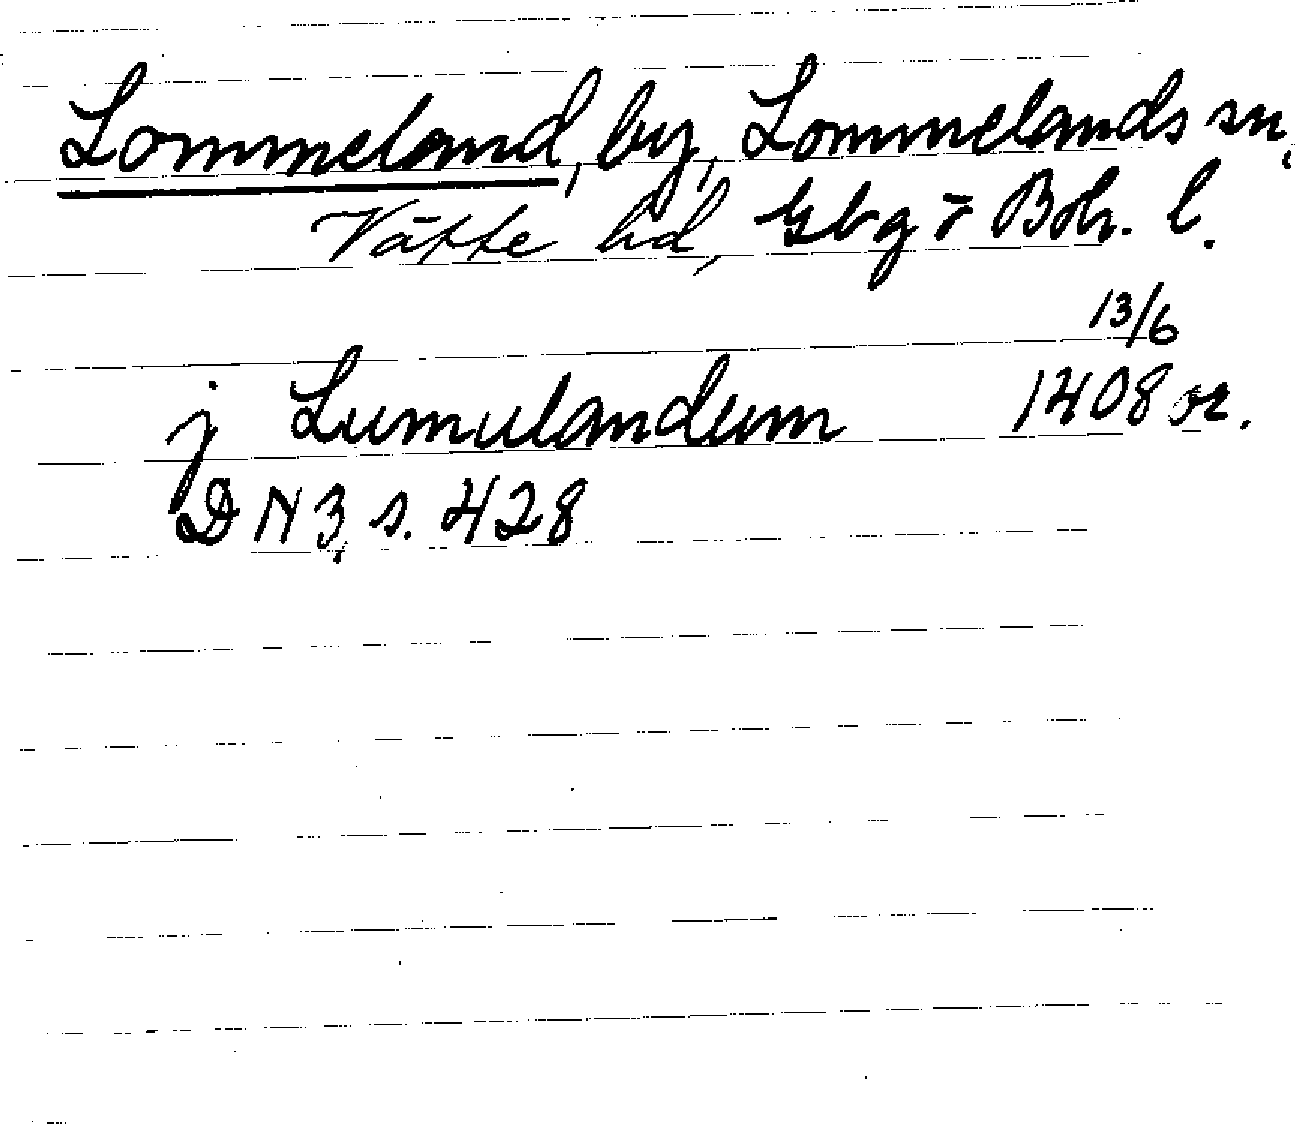 Lommeland, by, Lommelands sn,
Vätte hd, Gbg o Boh. l.
13/6
j Lumulandum 1408 or.
DN 3, s. 428